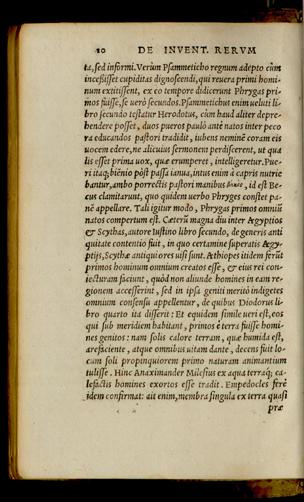 10 DE INVENT. RERVM
ta, sed informi. Verùm Psammeticho regnum adepto cùm
incessisset cupiditas dignoscendi, qui reuera primi homi-
num extitissent, ex eo tempore didicerunt Phrygas pri-
mos fuisse, se verò secundos. Psammetichus enim veluti li-
bro secundo testatur Herodotus, cùm haud aliter depre-
hendere posset, duos pueros paulò antè natos inter peco
ra educandos pastori tradidit, iubens neminē coram eis
vocem edere, ne alicuius sermonem perdiscerent, ut qua
lis esset prima vox, quæ erumperet, intelligeretur. Pue-
ri itaq; biēnio pòst passa ianua, intus enim à capris nutrie
bantur, ambo porrectis pastori manibus id est Be-
cus clamitarunt, quo quidem verbo Phryges constet pa-
nē appellare. Tali igitur modo, Phrygas primos omniū
natos compertum est. Cæterū magna diu inter Ægyptios
& Scythas, autore Iustino libro secundo, de generis anti
quitate contentio fuit, in quo certamine superatis Ægy-
ptijs, Scythæ antiquiores uisi sunt. Æthiopes itidem ferūt
primos hominum omnium creatos esse, & eius rei con-
iecturam faciunt, quòd non aliunde homines in eam re-
gionem accesserint, sed in ipsa geniti meritò indigetes
omnium consensu appellentur, de quibus Diodorus li-
bro quarto ita disserit: Et equidem simile ueri est, eos
qui sub meridiem habitant, primos è terra fuisse homi-
nes genitos: nam solis calore terram, quæ humida est,
arefaciente, atque omnibus uitam dante, decens fuit lo-
cum soli propinquiorem primo naturam animantium
tulisse. Hinc Anaximander Milesius ex aqua terraq; ca-
lefactis homines exortos esse tradit. Empedocles ferè
idem confirmat: ait enim, membra singula ex terra quasi
præ